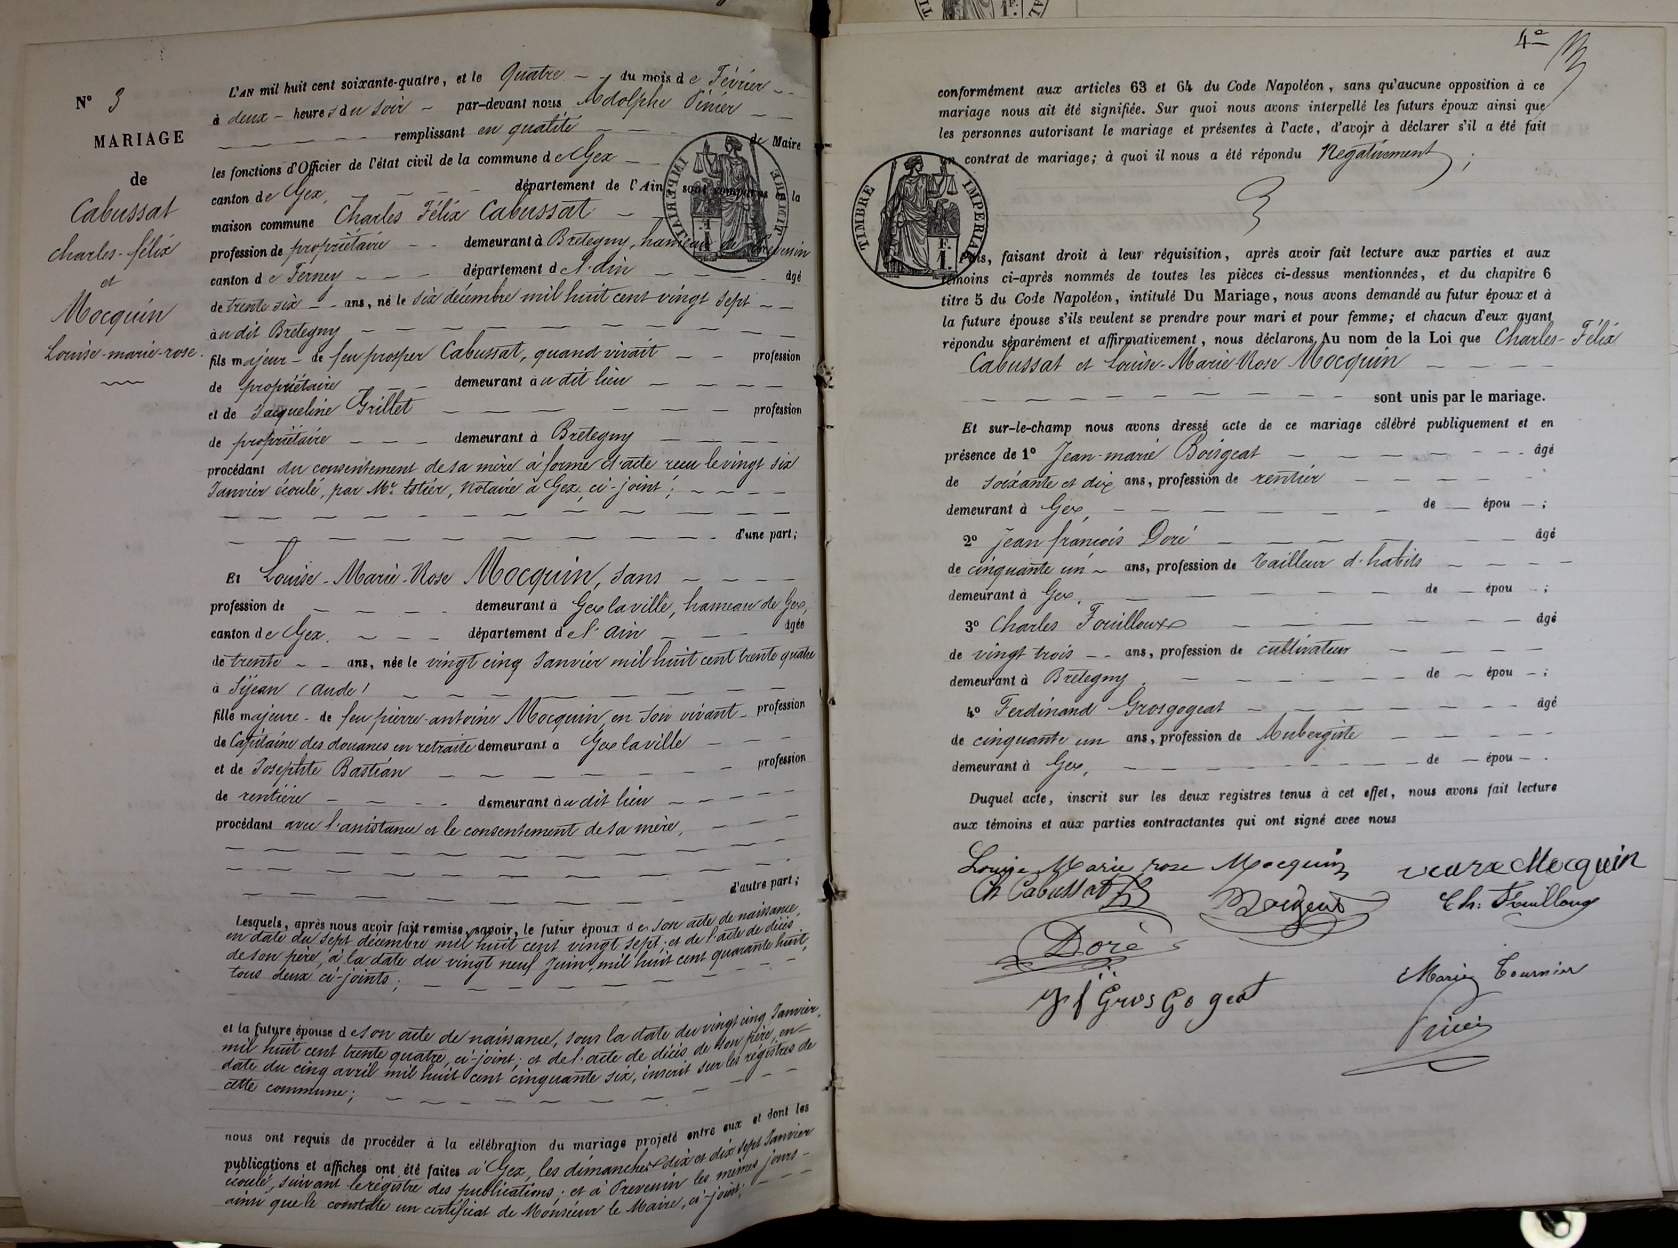 N° 3
MARIAGE
de
Cabussat
Charles-félix
et
Mocquin
Louise-marie-rose.
L'AN mil huit cent soixante-quatre, et le Quatre du mois de Février
à deux heures du soir par-devant nous Adolphe Pinier
remplissant en qualité de Maire
les fonctions d'Officier de l'état civil de la commune de Gex
canton de Gex, département de l'Ain, sont comparus à la
maison commune Charles Félix Cabussat
profession de propriétaire demeurant à Bretegny, hameau de Prevenin
canton de Ferney département de l'Ain âgé
de trente six ans, né le six décembre mil huit cent vingt sept
àu dit Bretegny
fils majeur de feu prosper Cabussat, quand vivait profession
de propriétaire demeurant àu dit lieu
et de Jacqueline Grillet profession
de propriétaire demeurant à Bretegny
procédant du consentement de sa mère à forme d'acte recu le vingt six
Janvier écoulé, par Mr Astier, Notaire à Gex, ci-joint;
d'une part;
Et Louise-Marie-Rose Mocquin, sans
profession de demeurant à Gex la ville, hameau de Gex,
canton de Gex. département de l'ain âgée
de trente ans, née le vingt cinq Janvier mil huit cent trente quatre
à Sijean (aude)
fille majeure de feu pierre-antoine Mocquin, en son vivant profession
de Capitaine des douanes en retraite demeurant à Gex la ville
et de Josephte Bastian profession
de rentière demeurant àu dit lieu
procédant avec l'assistance et le consentement de sa mère,
d'autre part;
Lesquels, après nous avoir fait remise, savoir, le futur époux de son acte de naissance,
en date du sept décembre mil huit cent vingt sept; et de l'acte de décès
de son père, à la date du vingt neuf Juin, mil huit cent quarante huit,
tous deux ci-joints;
et la future épouse de son acte de naissance, sous la date du vingt cinq Janvier
mil huit cent trente quatre, ci-joint; et de l'acte de décès de son père, en
date du cinq avril mil huit cent cinquante six, inscrit sur les régistres de
cette commune;
nous ont requis de procéder à la célébration du mariage projeté entre eux et dont les
publications et affiches ont été faites à Gex, les dimanches dix et dix sept Janvier
écoulé, suivant le régistre des publications; et à Prevenin les mêmes jours
ainsi que le constate un certificat de Monsieur le Maire, ci-joint;
4e
conformément aux articles 63 et 64 du Code Napoléon, sans qu'aucune opposition à ce
mariage nous ait été signifiée. Sur quoi nous avons interpellé les futurs époux ainsi que
les personnes autorisant le mariage et présentes à l'acte, d'avoir à déclarer s'il a été fait
un contrat de mariage; à quoi il nous a été répondu Négativement;
TIMBRE IMPERIAL
Nous, faisant droit à leur réquisition, après avoir fait lecture aux parties et aux
témoins ci-après nommés de toutes les pièces ci-dessus mentionnées, et du chapitre 6
titre 5 du Code Napoléon, intitulé Du Mariage, nous avons demandé au futur époux et à
la future épouse s'ils veulent se prendre pour mari et pour femme; et chacun d'eux ayant
répondu séparément et affirmativement, nous déclarons, Au nom de la Loi que Charles-Félix
Cabussat et Louise-Marie-Rose Mocquin
sont unis par le mariage.
Et sur-le-champ nous avons dressé acte de ce mariage célébré publiquement et en
présence de 1° Jean-marie Boisgeat âgé
de soixante et dix ans, profession de rentier
demeurant à Gex, de épou ;
2° Jean françois Doré âgé
de cinquante un ans, profession de tailleur d'habits
demeurant à Gex, de épou ;
3° Charles Fouilloux âgé
de vingt trois ans, profession de cultivateur
demeurant à Bretegny, de épou ;
4° Ferdinand Grosgogeat âgé
de cinquante un ans, profession de Aubergiste
demeurant à Gex, de épou .
Duquel acte, inscrit sur les deux registres tenus à cet effet, nous avons fait lecture
aux témoins et aux parties contractantes qui ont signé avec nous
Louise Marie rose Mocquin veuve Mocquin
Ch Cabussat Ch: Fouilloux
Doré
Marie Tournier
Jf Grosgogeat
Pinier